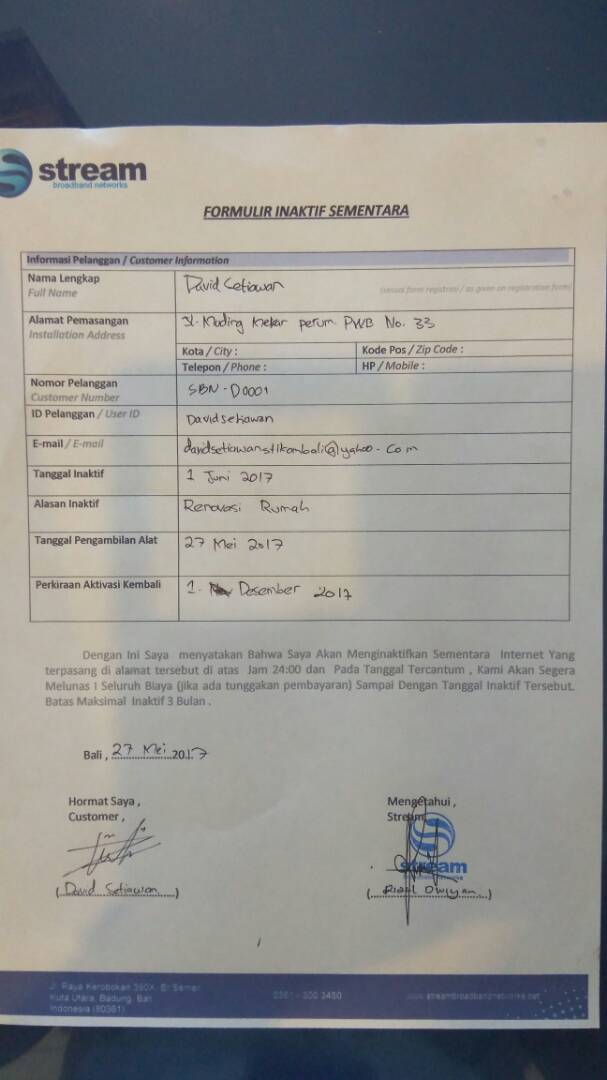 stream
broadband networks
FORMULIR INAKTIF SEMENTARA
Informasi Pelanggan / Customer Information
Nama Lengkap
Full Name
David Setiawan
(sesuai form registrasi / as given on registration form)
Alamat Pemasangan
Installation Address
Jl. Mading Mekar perum PWB No. 33
Kota / City :
Kode Pos / Zip Code :
Telepon / Phone :
HP / Mobile :
Nomor Pelanggan
Customer Number
SBN - D0001
ID Pelanggan / User ID
Davidsetiawan
E-mail / E-mail
@yahoo.com
Tanggal Inaktif
1 Juni 2017
Alasan Inaktif
Renovasi Rumah
Tanggal Pengambilan Alat
27 Mei 2017
Perkiraan Aktivasi Kembali
1. Desember 2017
Dengan Ini Saya menyatakan Bahwa Saya Akan Menginaktifkan Sementara Internet Yang
terpasang di alamat tersebut di atas Jam 24:00 dan Pada Tanggal Tercantum , Kami Akan Segera
Melunas I Seluruh Biaya (jika ada tunggakan pembayaran) Sampai Dengan Tanggal Inaktif Tersebut.
Batas Maksimal Inaktif 3 Bulan .
Bali , 27 Mei 2017
Hormat Saya ,
Customer ,
Mengetahui ,
Stream
stream
( David Setiawan )
Jl. Raya Kerobokan 390X, Br Semer
Kuta Utara, Badung, Bali
Indonesia (80361)
0361 - 300 3450
www.streambroadbandnetworks.net